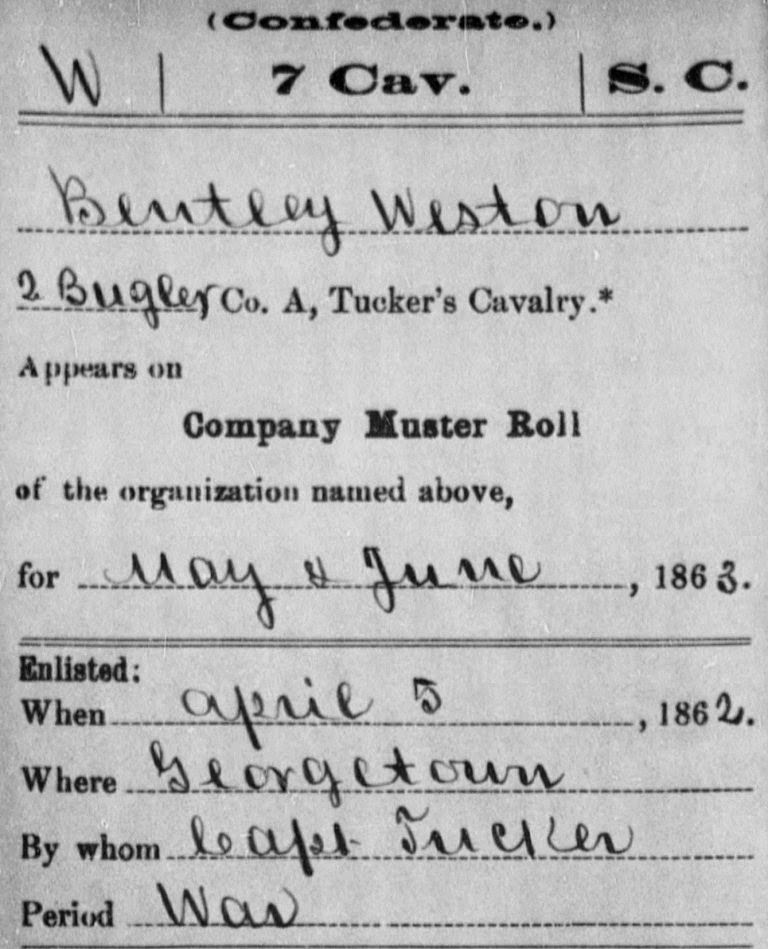 (Confederate.)
W | 7 Cav. | S. C.
Bentley Weston
2 Bugler Co. A, Tucker's Cavalry.*
Appears on
Company Muster Roll
of the organization named above,
for May & June, 1863.
Enlisted:
When April 5, 1862.
Where Georgetown
By whom Capt Tucker
Period War